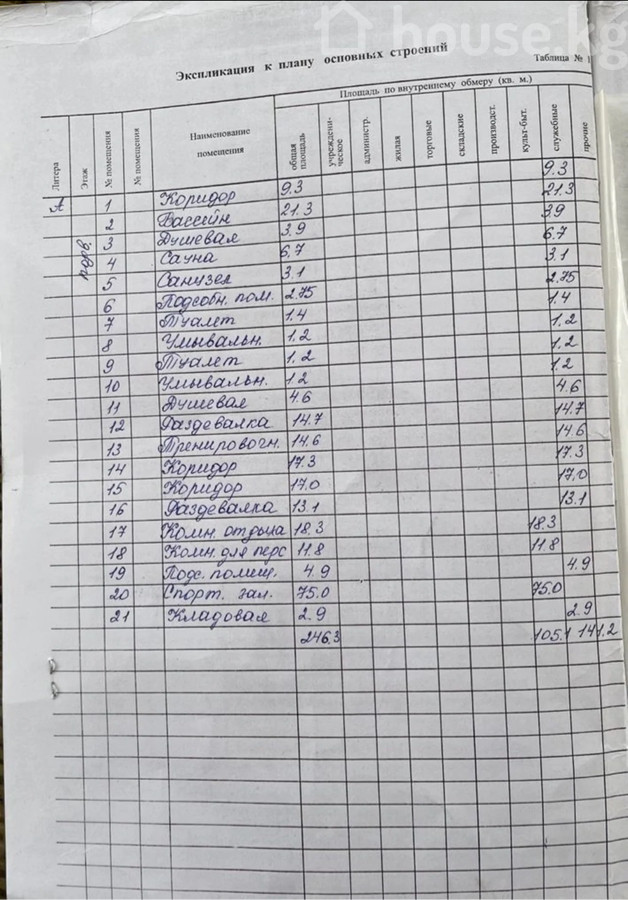 house.kg
Экспликация к плану основных строений
Таблица № 1
Литера
Этаж
№ помещения
№ помещения
Наименование помещения
Площадь по внутреннему обмеру (кв. м.)
общая площадь
учреждени-ческое
администр.
жилая
торговые
складские
производст.
культ-быт.
служебные
прочие
А подв. 1 Коридор 9.3 9.3
2 Бассейн 21.3 21.3
3 Душевая 3.9 3.9
4 Сауна 6.7 6.7
5 Санузел 3.1 3.1
6 Подсобн. пом. 2.75 2.75
7 Туалет 1.4 1.4
8 Умывальн. 1.2 1.2
9 Туалет 1.2 1.2
10 Умывальн. 1.2 1.2
11 Душевая 4.6 4.6
12 Раздевалка 14.7 14.7
13 Тренировочн. 14.6 14.6
14 Коридор 17.3 17.3
15 Коридор 17.0 17.0
16 Раздевалка 13.1 13.1
17 Комн. отдыха 18.3 18.3
18 Комн. для перс 11.8 11.8
19 Подс. помещ. 4.9 4.9
20 Спорт. зал. 75.0 75.0
21 Кладовая 2.9 2.9
246.3 105.1 141.2